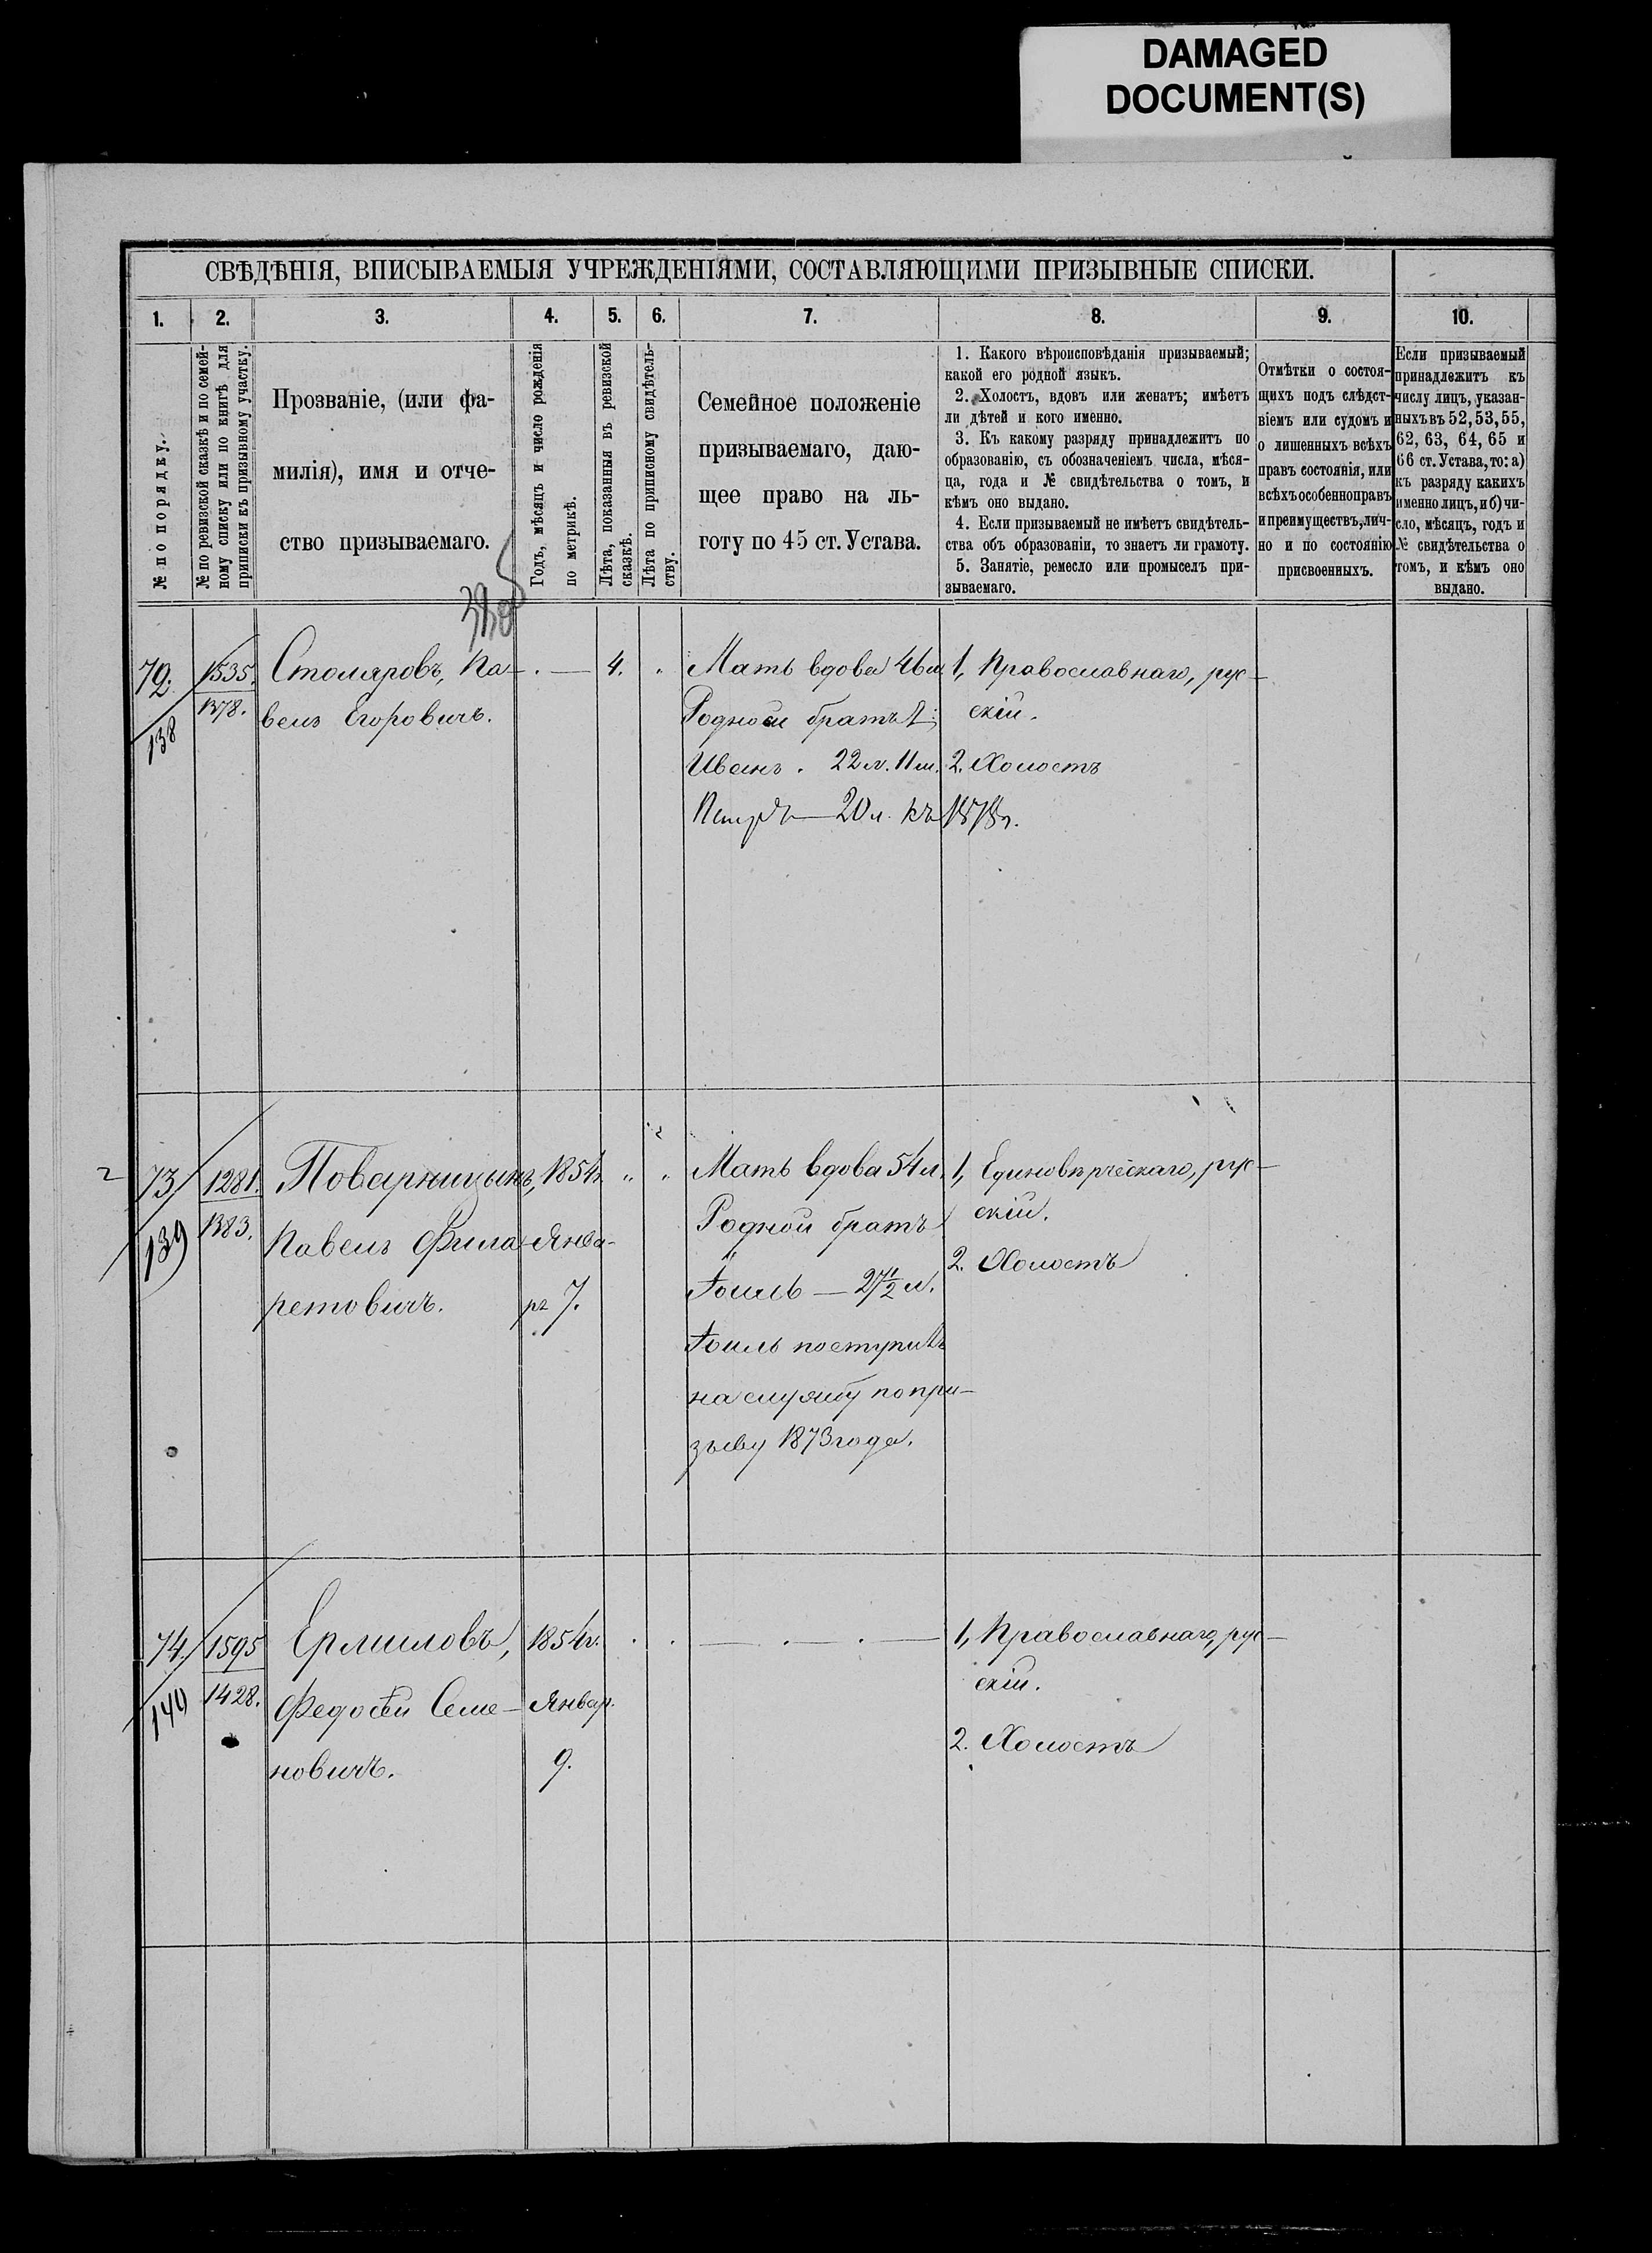 DAMAGED
DOCUMENT(S)
СВѢДѢНІЯ, ВПИСЫВАЕМЫЯ УЧРЕЖДЕНІЯМИ, СОСТАВЛЯЮЩИМИ ПРИЗЫВНЫЕ СПИСКИ.
1. 2. 3. 4. 5. 6. 7. 8. 9. 10.
№ по порядку.
№ по ревизской сказкѣ и по семей-
ному списку или по книгѣ для
приписки къ призывному участку.
Прозваніе, (или фа-
милія), имя и отче-
ство призываемаго.
Годъ, мѣсяцъ и число рожденія
по метрикѣ.
Лѣта, показанныя въ ревизской
сказкѣ.
Лѣта по приписному свидѣтель-
ству.
Семейное положеніе
призываемаго, даю-
щее право на ль-
готу по 45 ст. Устава.
1. Какого вѣроисповѣданія призываемый;
какой его родной языкъ.
2. Холостъ, вдовъ или женатъ; имѣетъ
ли дѣтей и кого именно.
3. Къ какому разряду принадлежитъ по
образованію, съ обозначеніемъ числа, мѣся-
ца, года и № свидѣтельства о томъ, и
кѣмъ оно выдано.
4. Если призываемый не имѣетъ свидѣтель-
ства объ образованіи, то знаетъ ли грамоту.
5. Занятіе, ремесло или промыселъ при-
зываемаго.
Отмѣтки о состоя-
щихъ подъ слѣдст-
віемъ или судомъ и
о лишенныхъ всѣхъ
правъ состоянія, или
всѣхъ особенно правъ
и преимуществъ, лич-
но и по состоянію
присвоенныхъ.
Если призываемый
принадлежитъ къ
числу лицъ, указан-
ныхъ въ 52, 53, 55,
62, 63, 64, 65 и
66 ст. Устава, то: а)
къ разряду какихъ
именно лицъ, и б) чи-
сло, мѣсяцъ, годъ и
№ свидѣтельства о
томъ, и кѣмъ оно
выдано.
72.
138
1535.
1378.
Столяровъ, Па-
велъ Егоровичъ.
4.
Мать вдова 46 л.
Родной братъ
Иванъ. 22 л. 11 м.
Петръ — 20 л. къ
1, Православнаго, рус-
скій.
2. Холостъ
73
139
1281.
1383.
Поварницынъ,
Павелъ Фила-
ретовичъ.
1854 г.
Янва-
ря 7.
Мать вдова 54 л.
Родной братъ
Іоиль — 27½ л.
Іоиль поступилъ
на службу по при-
зыву 1873 года.
1, Единовѣрческаго, рус-
скій.
2. Холостъ
74.
140
1595
1428.
Ермиловъ,
Федосѣй Семе-
новичъ.
1854 г.
Январ.
9.
1, Православнаго, рус-
скій.
2. Холостъ